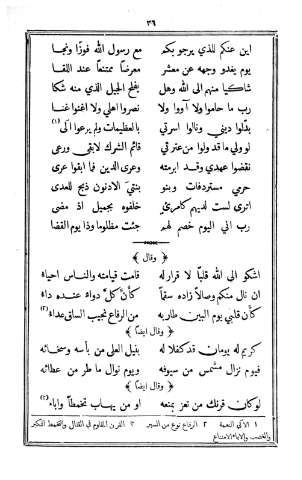 ٣٦
اين عنكم للذي يرجو بكم مع رسول الله فوزًا ونجا
يوم يغدو وجهه عن معشر معرضًا ممتنعًا عند اللقا
شاكيًا منهم الى الله وهل يفلح الجيل الذي منه شكا
رب ما حاموا ولا آووا ولا نصروا اهلي ولا اغنوا غنا
بدلوا ديني ونالوا اسرتي بالعظيمات ولم يرعوا الى (١)
لو ولي ما قد ولوا من عترتي قائم الشرك لابقى ورعى
نقضوا عهدي وقد ابرمته وعرى الدين فما ابقوا عرى
حرمي مستردفات وبنو بنتي الادنون ذبح للعدى
اترى لست لديهم كامرئ خلفوه بجميل اذ مضى
رب اني اليوم خصم لهم جئت مظلومًا وذا يوم القضا
﴿ وقال ﴾
اشكو الى الله قلبًا لا قرار له قامت قيامته والناس احياء
ان نال منكم وصالاً زاده سقمًا كأن كل دواء عنده داء
كأن قلبي يوم البين طار به من الرفاع نجيب الساق عداء (٢)
﴿ وقال ايضًا ﴾
كريم له يومان قد كفلا له بنيل العلى من بأسه وسخائه
فيوم نزال مشمس من سيوفه ويوم نوال ماطر من عطائه
﴿ وقال ايضًا ﴾
لو كان قرنك من تعز بمنعه او من يهاب تخمطًا واباء (٣)
١ الالى النعمة ٢ الرفاع نوع من السير ٣ القرن المقاوم في القتال والتخمط الكبر
والغضب والاباء الامتناع